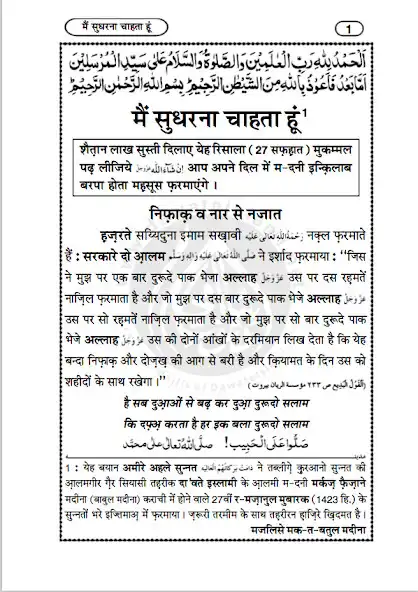 मैं सुधरना चाहता हूं
1
اَلْحَمْدُ لِلّٰهِ رَبِّ الْعٰلَمِيْنَ وَالصَّلٰوةُ وَالسَّلَامُ عَلٰى سَيِّدِ الْمُرْسَلِيْنَ
اَمَّا بَعْدُ فَاَعُوْذُ بِاللّٰهِ مِنَ الشَّيْطٰنِ الرَّجِيْمِ بِسْمِ اللّٰهِ الرَّحْمٰنِ الرَّحِيْمِ
मैं सुधरना चाहता हूं¹
शैत़ान लाख सुस्ती दिलाए येह रिसाला ( 27 सफ़ह़ात ) मुकम्मल
पढ़ लीजिये اِنْ شَآءَاللّٰه عَزَّوَجَلَّ आप अपने दिल में म-दनी इन्क़िलाब
बरपा होता महसूस फ़रमाएंगे ।
निफ़ाक़ व नार से नजात
ह़ज़रते सय्यिदुना इमाम सख़ावी رَحْمَةُ اللّٰهِ تَعَالٰى عَلَيْهِ नक़्ल फ़रमाते
हैं : सरकारे दो आ़लम صَلَّى اللّٰهُ تَعَالٰى عَلَيْهِ وَاٰلِهٖ وَسَلَّم ने इर्शाद फ़रमाया : “जिस
ने मुझ पर एक बार दुरूदे पाक भेजा अल्लाह عَزَّوَجَلَّ उस पर दस रह़मतें
नाज़िल फ़रमाता है और जो मुझ पर दस बार दुरूदे पाक भेजे अल्लाह عَزَّوَجَلَّ
उस पर सो रह़मतें नाज़िल फ़रमाता है और जो मुझ पर सो बार दुरूदे पाक
भेजे अल्लाह عَزَّوَجَلَّ उस की दोनों आंखों के दरमियान लिख देता है कि येह
बन्दा निफ़ाक़ और दोज़ख़ की आग से बरी है और क़ियामत के दिन उस को
शहीदों के साथ रखेगा ।” (اَلْقَوْلُ الْبَدِيْع ص ٢٣٣ مؤسسة الريان بيروت)
है सब दुआ़ओं से बढ़ कर दुआ़ दुरूदो सलाम
कि दफ़्अ़ करता है हर इक बला दुरूदो सलाम
صَلُّوْا عَلَى الْحَبِيْب! صَلَّى اللّٰهُ تَعَالٰى عَلٰى مُحَمَّد
1 : येह बयान अमीरे अहले सुन्नत دَامَتْ بَرَكَاتُهُمُ الْعَالِيَه ने तब्लीग़े क़ुरआनो सुन्नत की
आ़लमगीर ग़ैर सियासी तह़रीक दा'वते इस्लामी के आ़लमी म-दनी मर्कज़ फ़ैज़ाने
मदीना (बाबुल मदीना) कराची में होने वाले 27वीं र-मज़ानुल मुबारक (1423 हि.) के
सुन्नतों भरे इज्तिमाअ़ में फ़रमाया । ज़रूरी तरमीम के साथ तह़रीरन ह़ाज़िरे ख़िदमत है ।
मजलिसे मक-त-बतुल मदीना